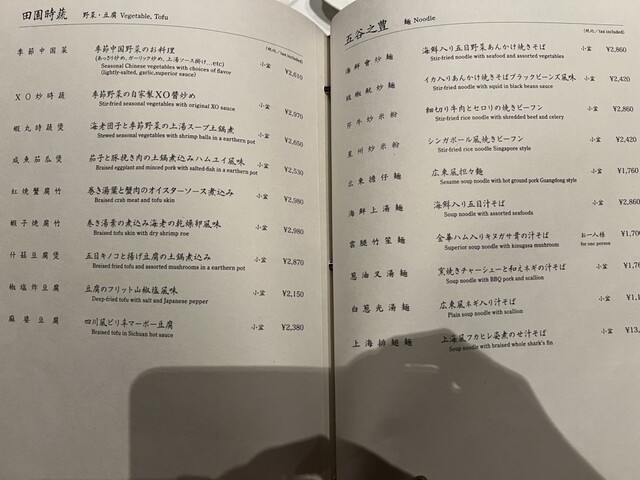 田園時蔬 野菜・豆腐 Vegetable, Tofu
(税込/tax included)
季節中国菜 季節中国野菜のお料理
(あっさり炒め、ガーリック炒め、上湯ソース掛け...etc) 小盆 ¥2,610
Seasonal Chinese vegetables with choices of flavor
(lightly-salted, garlic,superior sauce)
XO炒時蔬 季節野菜の自家製XO醬炒め 小盆 ¥2,970
Stir-fried seasonal vegetables with original XO sauce
蝦丸時蔬煲 海老団子と季節野菜の上湯スープ土鍋煮 小盆 ¥2,650
Stewed seasonal vegetables with shrimp balls in a earthern pot
咸魚茄瓜煲 茄子と豚挽き肉の土鍋煮込みハムユイ風味 小盆 ¥2,530
Braised eggplant and minced pork with salted-dish in a earthern pot
紅焼蟹腐竹 巻き湯葉と蟹肉のオイスターソース煮込み 小盆 ¥2,980
Braised crab meat and tofu skin
蝦子焼腐竹 巻き湯葉の煮込み海老の乾燥卵風味 小盆 ¥2,980
Braised tofu skin with dry shrimp roe
什菇豆腐煲 五目キノコと揚げ豆腐の土鍋煮込み 小盆 ¥2,870
Braised tofu and assorted mushrooms in a earthern pot
椒塩炸豆腐 豆腐のフリット山椒塩風味 小盆 ¥2,150
Deep-fried tofu with salt and Japanese pepper
麻婆豆腐 四川風ピリ辛マーボー豆腐 小盆 ¥2,380
Braised tofu in Sichuan hot sauce
五谷之豊 麺 Noodle
(税込/tax included)
海鮮會炒麺 海鮮入り五目野菜あんかけ焼きそば 小盆 ¥2,860
Stir-fried noodle with seafood and assorted vegetables
豉椒魷炒麺 イカ入りあんかけ焼きそばブラックビーンズ風味 小盆 ¥2,
Stir-fried noodle with squid in black beans sauce
芹牛炒米粉 細切り牛肉とセロリの焼きビーフン 小盆 ¥2,860
Stir-fried rice noodle with shredded beef and celery
星州炒米粉 シンガポール風焼きビーフン 小盆 ¥2,420
Stir-fried rice noodle Singapore style
広東擔仔麺 広東風担々麺 小盆 ¥1,760
Sesame soup noodle with hot ground pork Guangdong style
海鮮上湯麺 海鮮入り五目汁そば 小盆 ¥2,860
Soup noodle with assorted seafoods
雲腿竹笙麺 金華ハム入りキヌガサ茸の汁そば お一人様 ¥1,70
Superior soup noodle with kinugasa mushroom for one person
葱油叉湯麺 窯焼きチャーシューと和えネギの汁そば 小盆 ¥1,7
Soup noodle with BBQ pork and scallion
白葱光湯麺 広東風ネギ入り汁そば 小盆 ¥1,1
Plain soup noodle with scallion
上海排翅麺 上海風フカヒレ姿煮のせ汁そば 小盆 ¥13,
Soup noodle with braised whole shark's fin